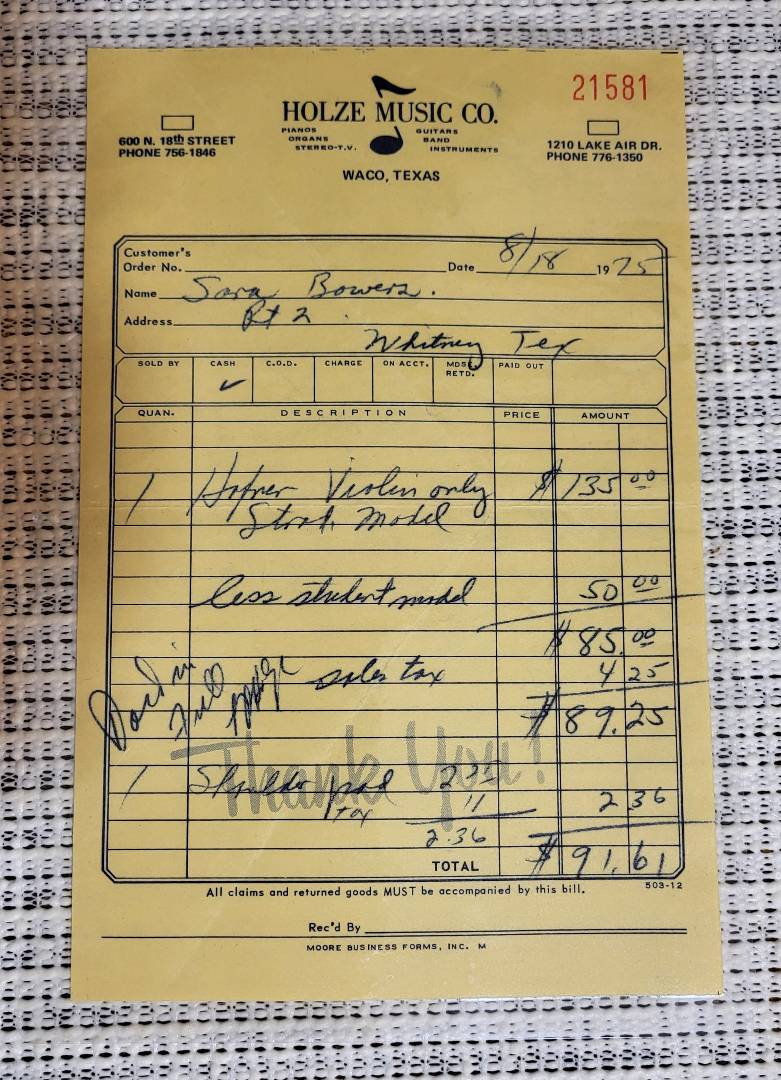 21581
HOLZE MUSIC CO.
PIANOS GUITARS
ORGANS BAND
STEREO-T.V. INSTRUMENTS
600 N. 18th STREET
PHONE 756-1846
1210 LAKE AIR DR.
PHONE 776-1350
WACO, TEXAS
Customer's
Order No. Date 8/18 1975
Name Sara Bowers.
Address Rt 2
Whitney Tex
SOLD BY CASH C.O.D. CHARGE ON ACCT. MDSE. RETD. PAID OUT
✓
QUAN. DESCRIPTION PRICE AMOUNT
1 Hofner Violin only $135.00
Strad. Model
less student model 50 00
$85.00
sales tax 4 25
Paid in
Full
$89.25
Thank You!
1 Shoulder pad 2 25
tax 11 2 36
2.36
TOTAL $91.61
All claims and returned goods MUST be accompanied by this bill. 503-12
Rec'd By
MOORE BUSINESS FORMS, INC. M